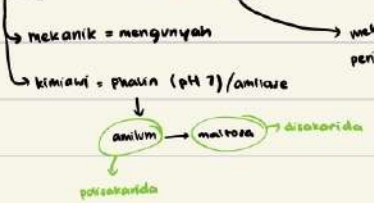 → mekanik = mengunyah
→ kimiawi = ptialin (pH 7)/amilase
↓
amilum → maltosa → disakarida
↓
polisakarida